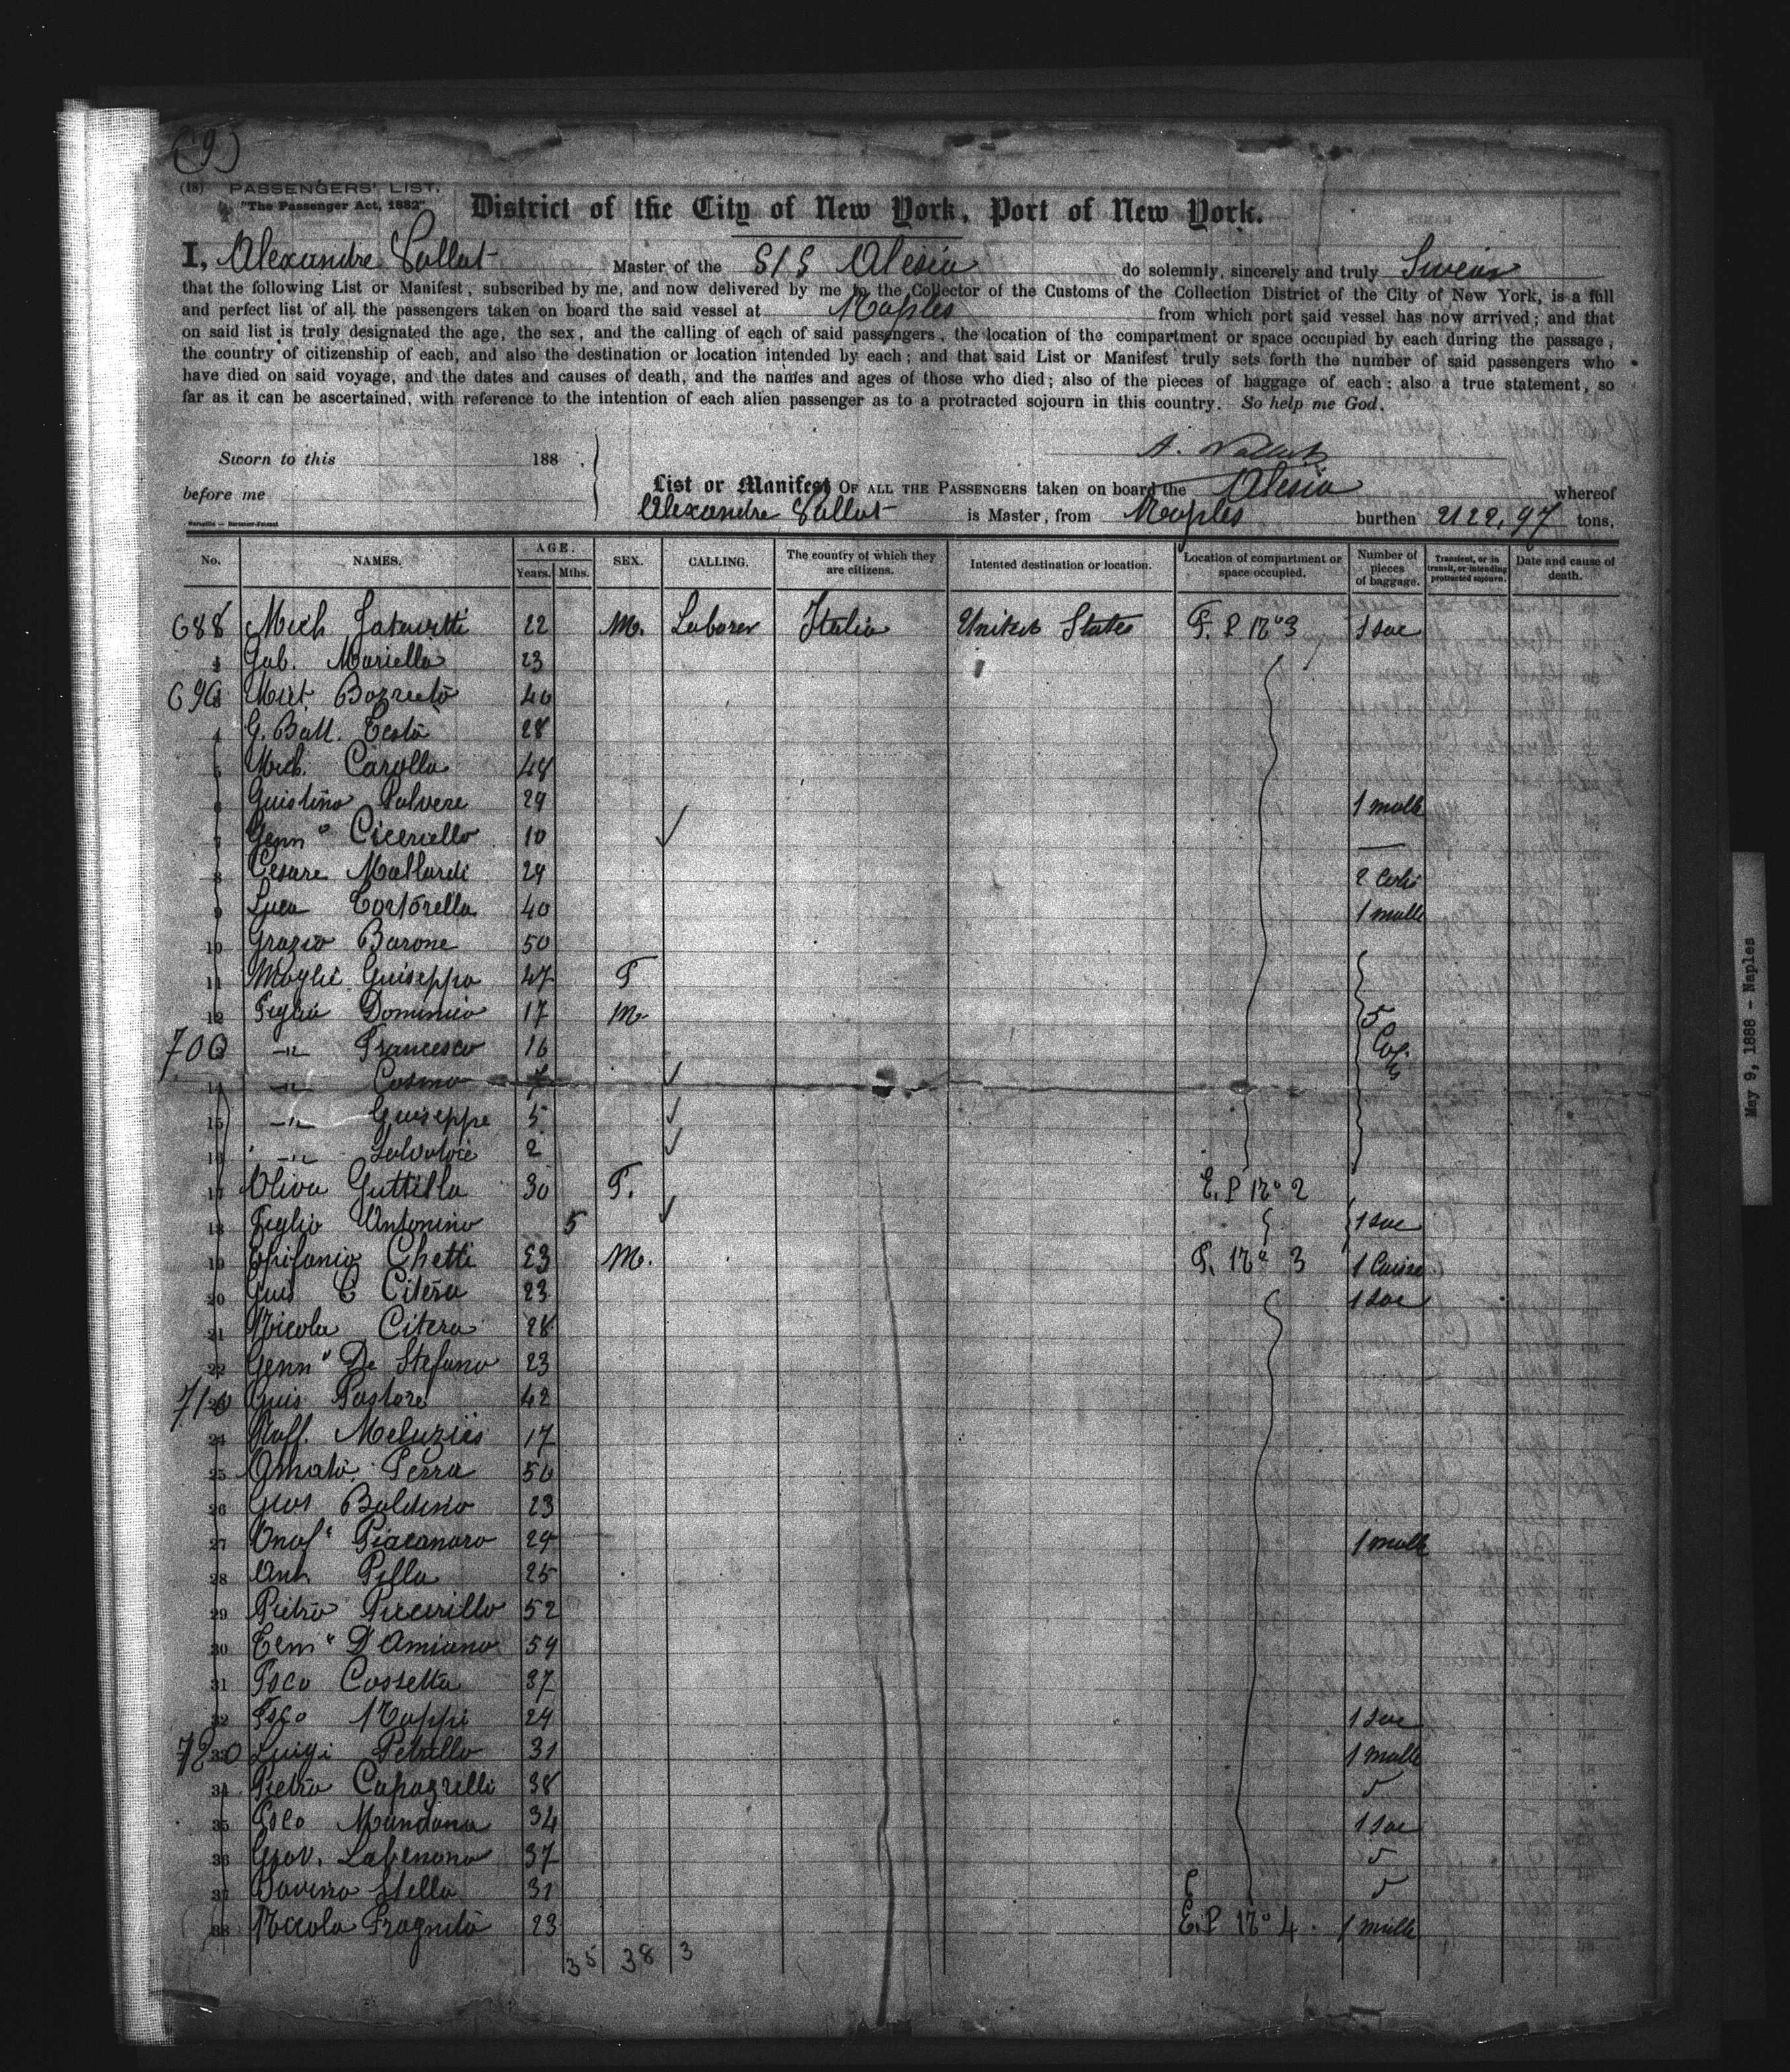 (9)
(18) PASSENGERS' LIST.
"The Passenger Act, 1882"
District of the City of New York, Port of New York.
I, Alexandre Vallat Master of the S/S Alesia do solemnly, sincerely and truly Swear
that the following List or Manifest, subscribed by me, and now delivered by me to the Collector of the Customs of the Collection District of the City of New York, is a full
and perfect list of all the passengers taken on board the said vessel at Naples from which port said vessel has now arrived; and that
on said list is truly designated the age, the sex, and the calling of each of said passengers, the location of the compartment or space occupied by each during the passage,
the country of citizenship of each, and also the destination or location intended by each; and that said List or Manifest truly sets forth the number of said passengers who
have died on said voyage, and the dates and causes of death, and the names and ages of those who died; also of the pieces of baggage of each; also a true statement, so
far as it can be ascertained, with reference to the intention of each alien passenger as to a protracted sojourn in this country. So help me God.
Sworn to this 188 .
A. Vallat
before me
List or Manifest OF ALL THE PASSENGERS taken on board the Alesia whereof
Alexandre Vallat is Master, from Naples burthen 2122,97 tons.
No. NAMES. AGE. Years. Mths. SEX. CALLING. The country of which they are citizens. Intented destination or location. Location of compartment or space occupied. Number of pieces of baggage. Transient, or in transit, or intending protracted sojourn. Date and cause of death.
688 Mich 22 M. Laborer Italia United States F. P No 3 1 sac
Gab. Mariella 23
690 40
4 G. Batt. Testa 28
5 Mich. Carolla 48
6 Guistino Polvere 29 1 malle
7 Genn° Ciceriello 10
8 Cesare Mallardi 29 2 colis
9 Luca Tortorella 40 1 malle
10 Grazio Barone 50
11 Moglie Guiseppa 47 F
12 Figlio Dominico 17 M. 5 Colis
700 -"- Francesco 16
14 -"- Cosmo 7
15 -"- Guiseppe 5
16 -"- Salvatore 2
17 Oliva Guttilla 30 F. E. P No 2
18 Figlio Antonino 5 1 sac
19 Epifanio Chetti 23 M. P. No 3 1 Caisse
20 Guis C Citera 23 1 sac
21 Nicola Citera 28
22 Genn° De Stefano 23
710 Guis Pastore 42
24 Raff. 17
25 Amato Perra 50
26 Baldino 23
27 Onof° Giacanaro 29 1 malle
28 Ant. Pilla 25
29 Pietro Piccirillo 52
30 D'Amiano 59
31 Fsco Cossetta 37
32 Fsco Nappi 29 1 sac
720 Luigi Petrillo 31 1 malle
34 Pietro 38
35 Fsco Mandana 34 1 sac
36 Giov. 37
37 Savino Stella 31
38 Nicola Fragnito 23 E. P No 4 1 malle
35 38 3
May 9, 1888 - Naples